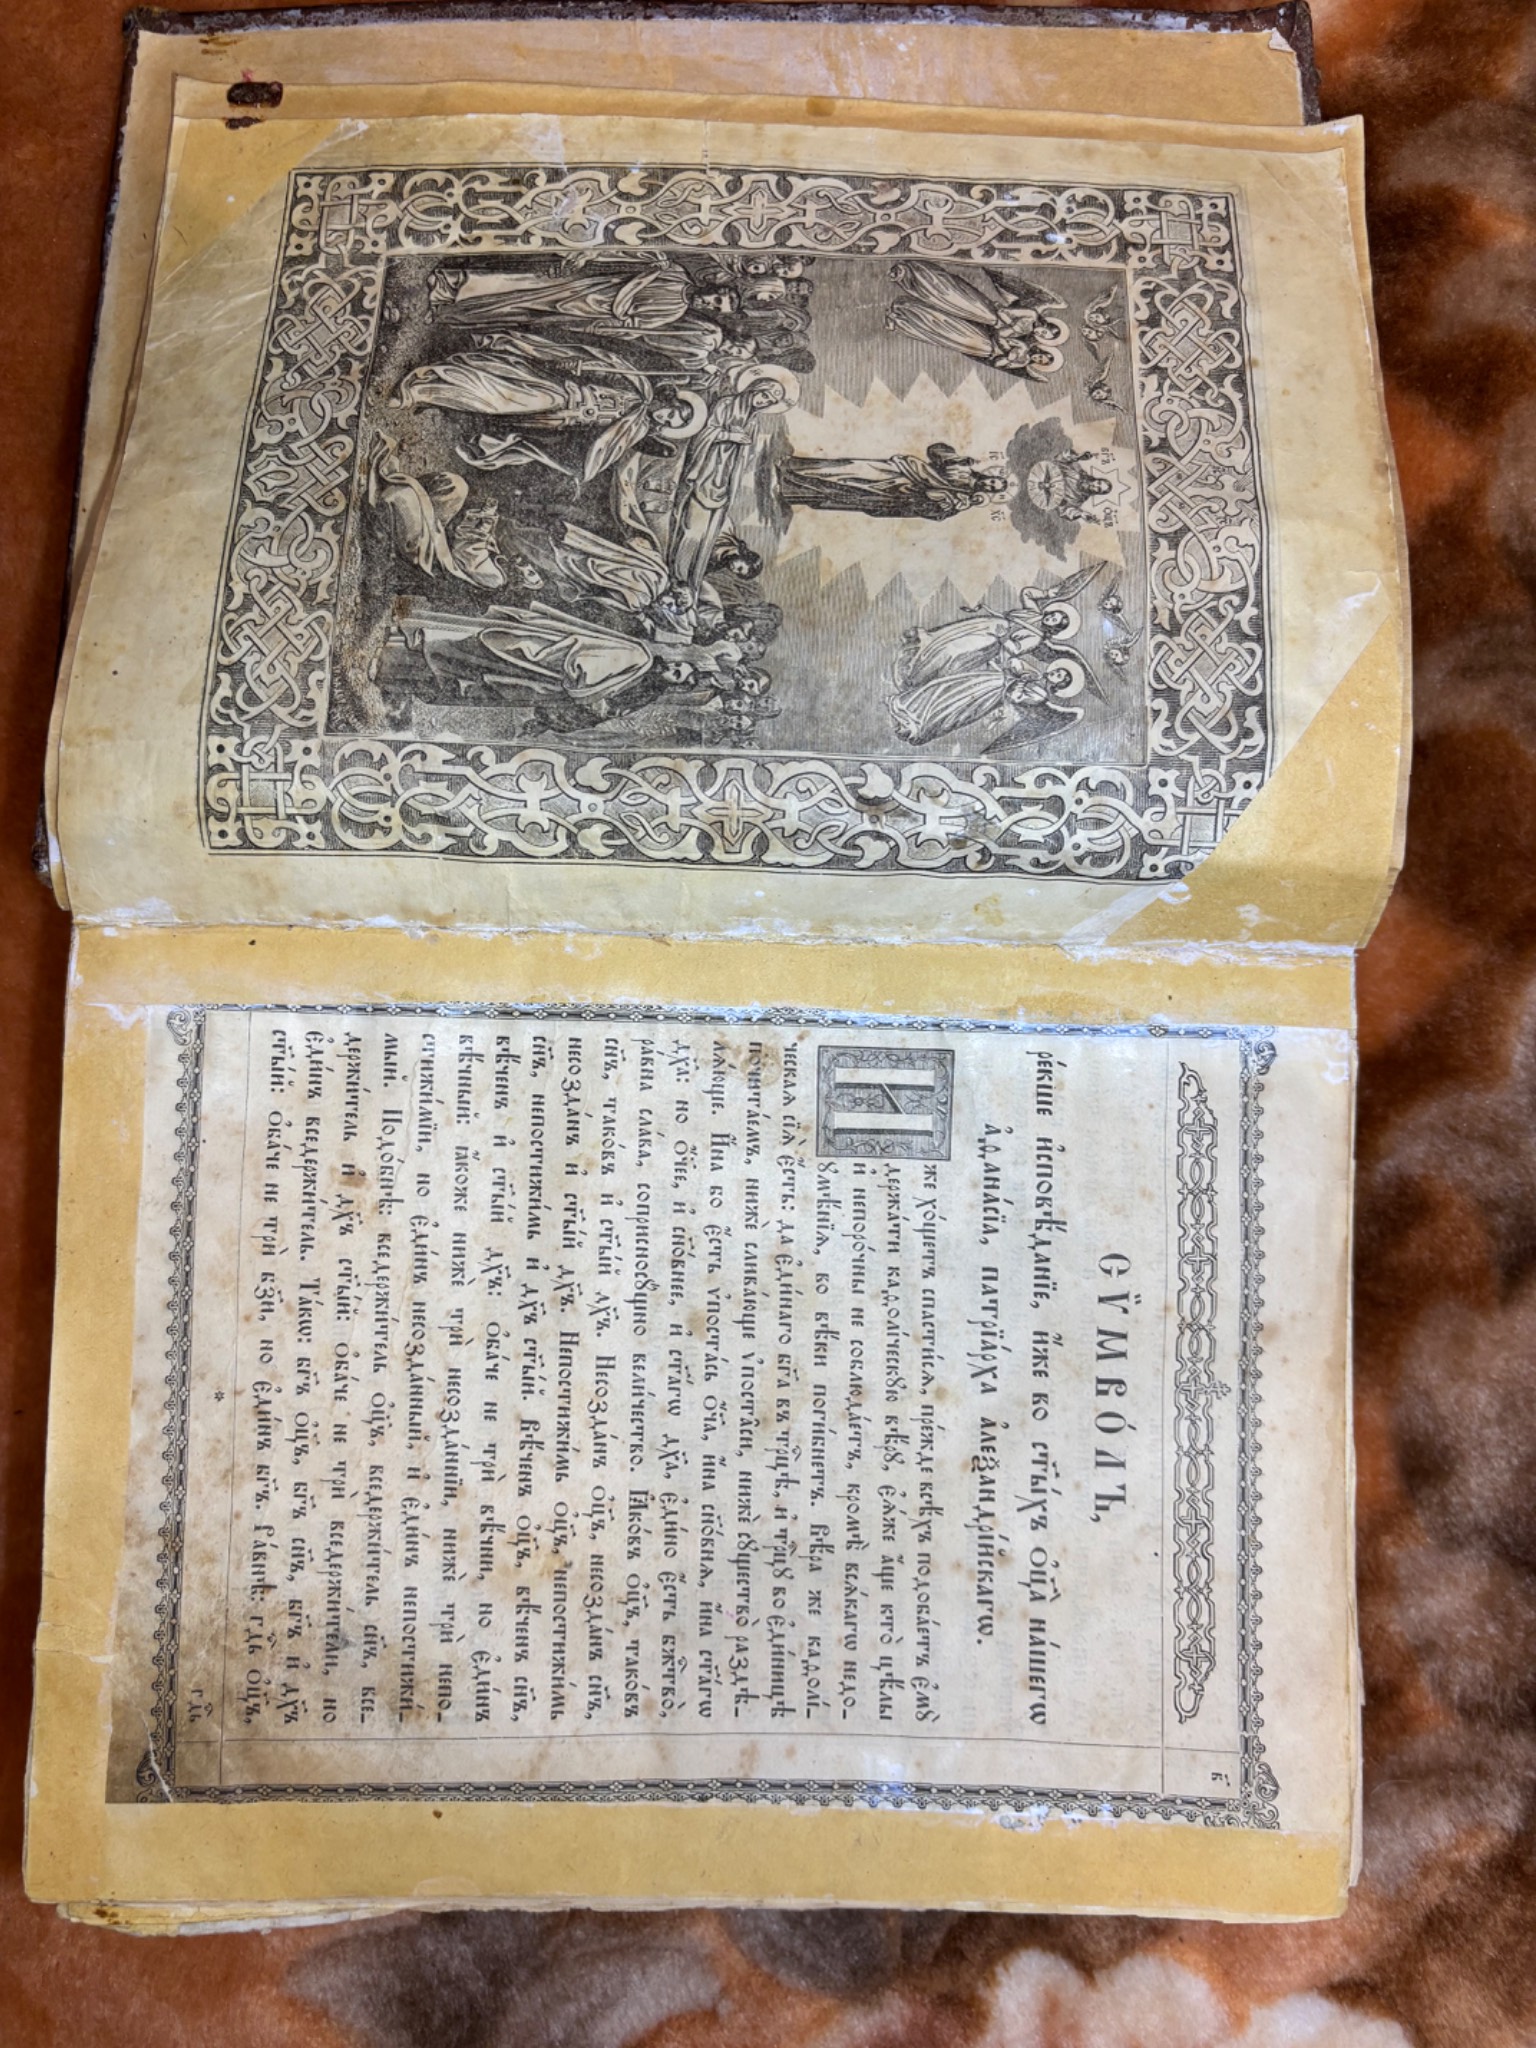 ІС ХС
в҃
СѴ́МВОЛЪ,
ре́кше и҆сповѣ́данїе, и҆́же во ст҃ы́хъ ѻ҆ц҃а̀ на́шегѡ
а҆ѳана́сїа, патрїа́рха а҆леѯандрі́йскагѡ.
И҆́же хо́щетъ спасти́сѧ, пре́жде всѣ́хъ подоба́етъ є҆мꙋ̀
держа́ти каѳоли́ческꙋю вѣ́рꙋ, є҆ѧ́же а҆́ще кто̀ цѣ́лы
и҆ непоро́чны не соблюда́етъ, кромѣ̀ всѧ́кагѡ недо-
ꙋмѣ́нїѧ, во вѣ́ки поги́бнетъ. Вѣ́ра же каѳоли́-
ческаѧ сїѧ̀ є҆́сть: да є҆ди́наго бг҃а въ трⷪ҇цѣ, и҆ трⷪ҇цꙋ во є҆ди́ницѣ
почита́емъ, нижѐ слива́юще ѵ҆поста̑си, нижѐ сꙋщество̀ раздѣ-
лѧ́юще. И҆́на бо є҆́сть ѵ҆поста́сь ѻ҆́ч҃а, и҆́на сн҃о́внѧ, и҆́на ст҃а́гѡ
дх҃а: но ѻ҆́ч҃ее, и҆ сн҃о́внее, и҆ ст҃а́гѡ дх҃а, є҆ди́но є҆́сть бжⷭ҇тво̀,
ра́вна сла́ва, соприсносꙋ́щно вели́чество. Ꙗ҆ко́въ ѻ҆ц҃ъ, тако́въ
сн҃ъ, тако́въ и҆ ст҃ы́й дх҃ъ. Несозда́нъ ѻ҆ц҃ъ, несозда́нъ сн҃ъ,
несозда́нъ и҆ ст҃ы́й дх҃ъ. Непостижи́мь ѻ҆ц҃ъ, непостижи́мь
сн҃ъ, непостижи́мь и҆ дх҃ъ ст҃ы́й. Вѣ́ченъ ѻ҆ц҃ъ, вѣ́ченъ сн҃ъ,
вѣ́ченъ и҆ ст҃ы́й дх҃ъ: ѻ҆ба́че не трѝ вѣ́чни, но є҆ди́нъ
вѣ́чный: ꙗ҆́коже нижѐ трѝ несозда́ннїи, нижѐ трѝ непо-
стижи́мїи, но є҆ди́нъ несозда́нный, и҆ є҆ди́нъ непостижи́-
мый. Подо́бнѣ: вседержи́тель ѻ҆ц҃ъ, вседержи́тель сн҃ъ, все-
держи́тель и҆ дх҃ъ ст҃ы́й: ѻ҆ба́че не трѝ вседержи́тели, но
є҆ди́нъ вседержи́тель. Та́кѡ: бг҃ъ ѻ҆ц҃ъ, бг҃ъ сн҃ъ, бг҃ъ и҆ дх҃ъ
ст҃ы́й: ѻ҆ба́че не трѝ бз҃и, но є҆ди́нъ бг҃ъ. Ра́внѣ: гдⷭ҇ь ѻ҆ц҃ъ,
* гдⷭ҇ь